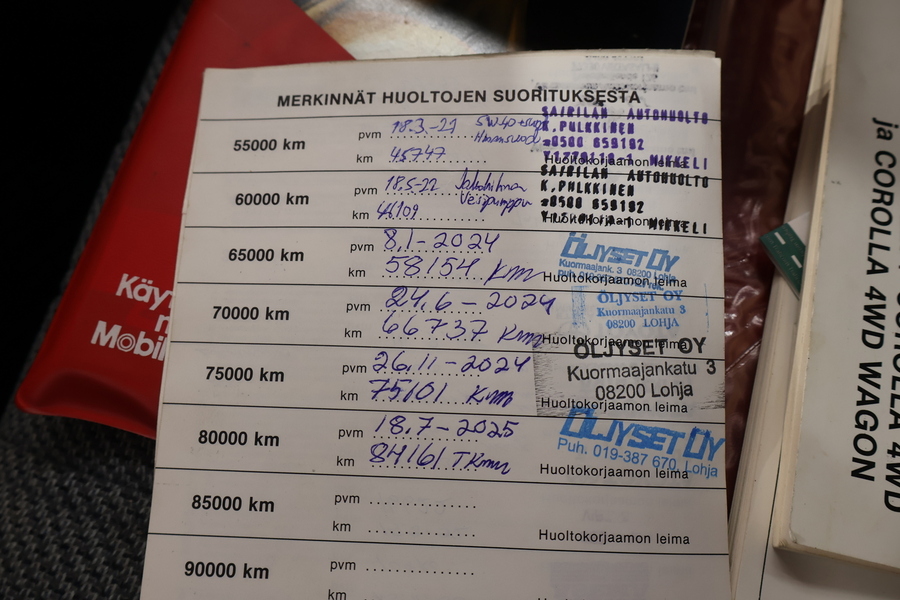 MERKINNÄT HUOLTOJEN SUORITUKSESTA
55000 km
pvm 18.3.-21 5W40+suod
km 45747
SAIRILAN AUTOHUOLTO
K.PULKKINEN
0500 659102
MIKKELI
Huoltokorjaamon leima
60000 km
pvm 18.5-22 Jakohihna
Vesipumppu
km 46109
SAIRILAN AUTOHUOLTO
K.PULKKINEN
0500 659102
MIKKELI
Huoltokorjaamon leima
65000 km
pvm 8.1-2024
km 58154 Km
ÖLJYSET OY
Kuormaajank. 3 08200 Lohja
Huoltokorjaamon leima
70000 km
pvm 24.6-2024
km 66737 Km
ÖLJYSET OY
Kuormaajankatu 3
08200 LOHJA
Huoltokorjaamon leima
75000 km
pvm 26.11-2024
km 75101 Km
ÖLJYSET OY
Kuormaajankatu 3
08200 Lohja
Huoltokorjaamon leima
80000 km
pvm 18.7-2025
km 84161 TKm
ÖLJYSET OY
Puh. 019-387 670, Lohja
Huoltokorjaamon leima
85000 km
pvm
km
Huoltokorjaamon leima
90000 km
pvm
km
Mobil
ja COROLLA 4WD WAGON
COROLLA 4WD